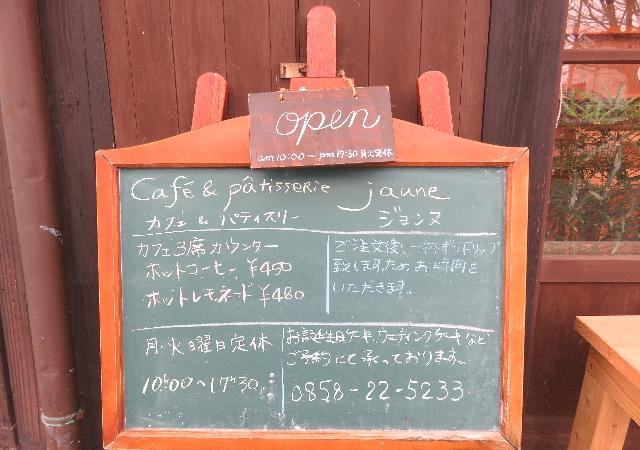 open
am 10:00〜pm17:30 月火定休
Café & pâtisserie jaune
カフェ & パティスリー ジョンヌ
カフェ3席カウンター
ホットコーヒー ¥450
ホットレモネード ¥480
ご注文後、一杯ずつドリップ
致しますためお時間を
いただきます。
月・火曜日定休
10:00〜17:30
お誕生日ケーキ、ウェディングケーキなど
ご予約にて承っております。
0858-22-5233